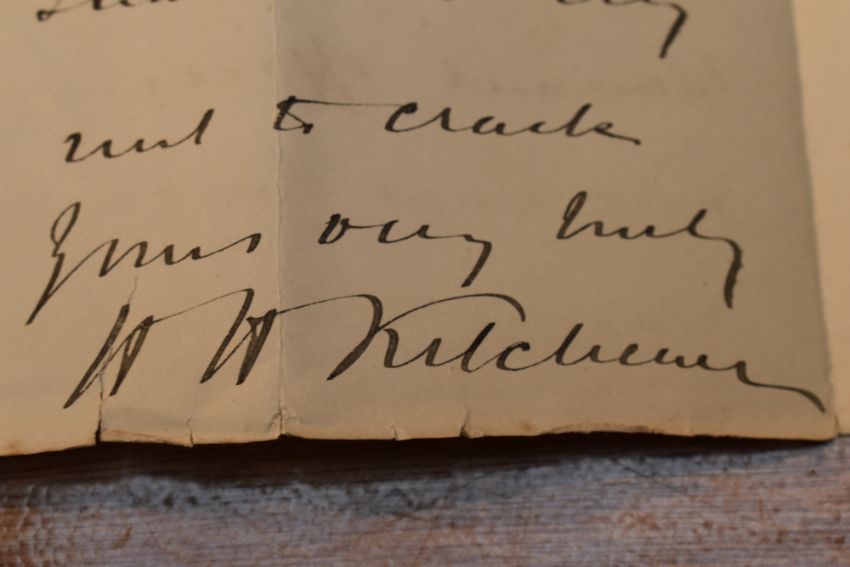 nut to crack
Yours very truly
H H Kitchener